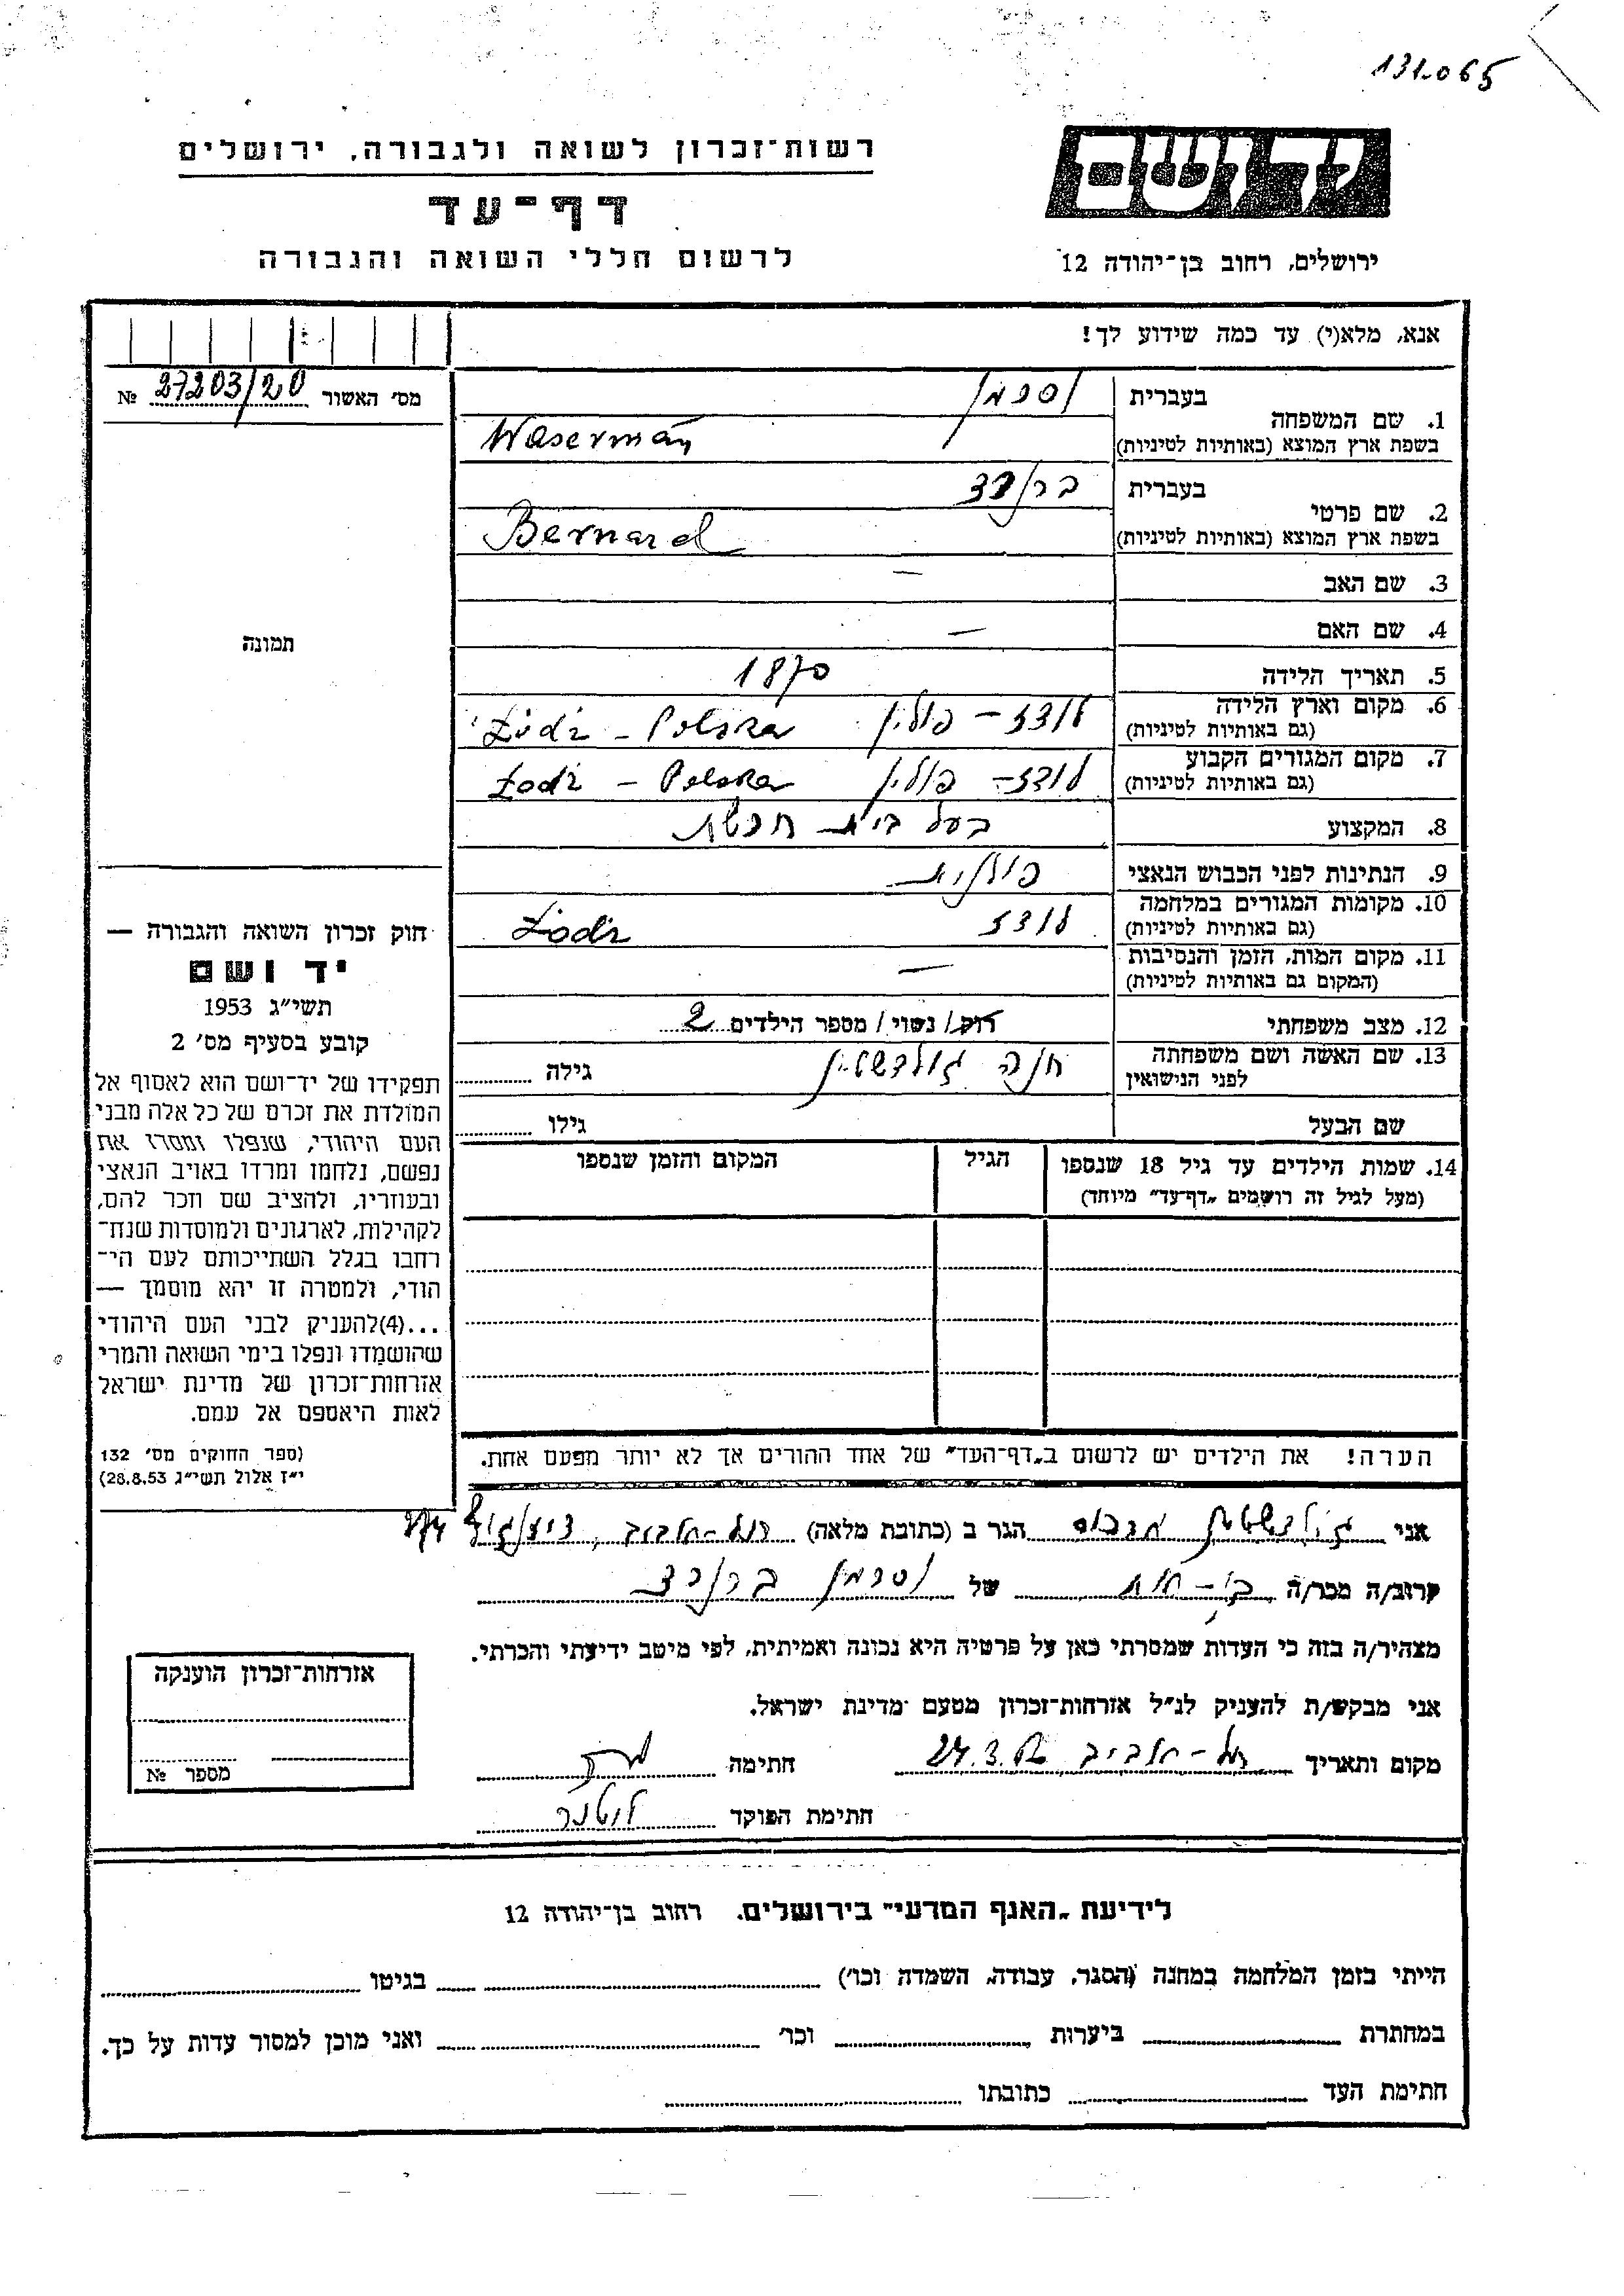 131065
יד ושם
רשות־זכרון לשואה ולגבורה, ירושלים
דף־עד
לרשום חללי השואה והגבורה
ירושלים, רחוב בן־יהודה 12
אנא, מלא(י) עד כמה שידוע לך!
מס׳ האשור № 27203/20
1. שם המשפחה
בעברית וסרמן
בשפת ארץ המוצא (באותיות לטיניות) Waserman
2. שם פרטי
בעברית
בשפת ארץ המוצא (באותיות לטיניות) Bernard
3. שם האב —
4. שם האם —
5. תאריך הלידה 1870
6. מקום וארץ הלידה
(גם באותיות לטיניות) לודז — פולין Łódź – Polska
7. מקום המגורים הקבוע
(גם באותיות לטיניות) לודז — פולין Łodź – Polska
8. המקצוע בעל בית חרשת
9. הנתינות לפני הכבוש הנאצי פולנית
10. מקומות המגורים במלחמה
(גם באותיות לטיניות) לודז Łodź
11. מקום המות, הזמן והנסיבות
(המקום גם באותיות לטיניות) —
12. מצב משפחתי רווק / נשוי / מספר הילדים 2
13. שם האשה ושם משפחתה
לפני הנישואין חנה גולדשטין גילה
שם הבעל גילו
14. שמות הילדים עד גיל 18 שנספו הגיל המקום והזמן שנספו
(מעל לגיל זה רושמים „דף־עד" מיוחד)
הערה! את הילדים יש לרשום ב„דף־העד" של אחד ההורים אך לא יותר מפעם אחת.
תמונה
חוק זכרון השואה והגבורה —
יד ושם
תשי״ג 1953
קובע בסעיף מס׳ 2
תפקידו של יד־ושם הוא לאסוף אל
המולדת את זכרם של כל אלה מבני
העם היהודי, שנפלו ומסרו את
נפשם, נלחמו ומרדו באויב הנאצי
ובעוזריו, ולהציב שם וזכר להם,
לקהילות, לארגונים ולמוסדות שנח־
רחבו בגלל השתייכותם לעם הי־
הודי, ולמטרה זו יהא מוסמך —
...(4)להעניק לבני העם היהודי
שהושמדו ונפלו בימי השואה והמרי
אזרחות־זכרון של מדינת ישראל
לאות היאספם אל עמם.
(ספר החוקים מס׳ 132
י״ז אלול תשי״ג 28.8.53)
אני גולדשטין הגר ב (כתובת מלאה) תל-אביב, דיזנגוף
קרוב/ה מכר/ה של וסרמן
מצהיר/ה בזה כי העדות שמסרתי כאן על פרטיה היא נכונה ואמיתית, לפי מיטב ידיעתי והכרתי.
אני מבקש/ת להעניק לנ״ל אזרחות־זכרון מטעם מדינת ישראל.
מקום ותאריך תל-אביב חתימה
חתימת הפוקד
אזרחות־זכרון הוענקה
מספר №
לידיעת „האגף המדעי" בירושלים, רחוב בן־יהודה 12
הייתי בזמן המלחמה במחנה (הסגר, עבודה, השמדה וכו׳) בגיטו
במחתרת ביערות וכו׳ ואני מוכן למסור עדות על כך.
חתימת העד כתובתו